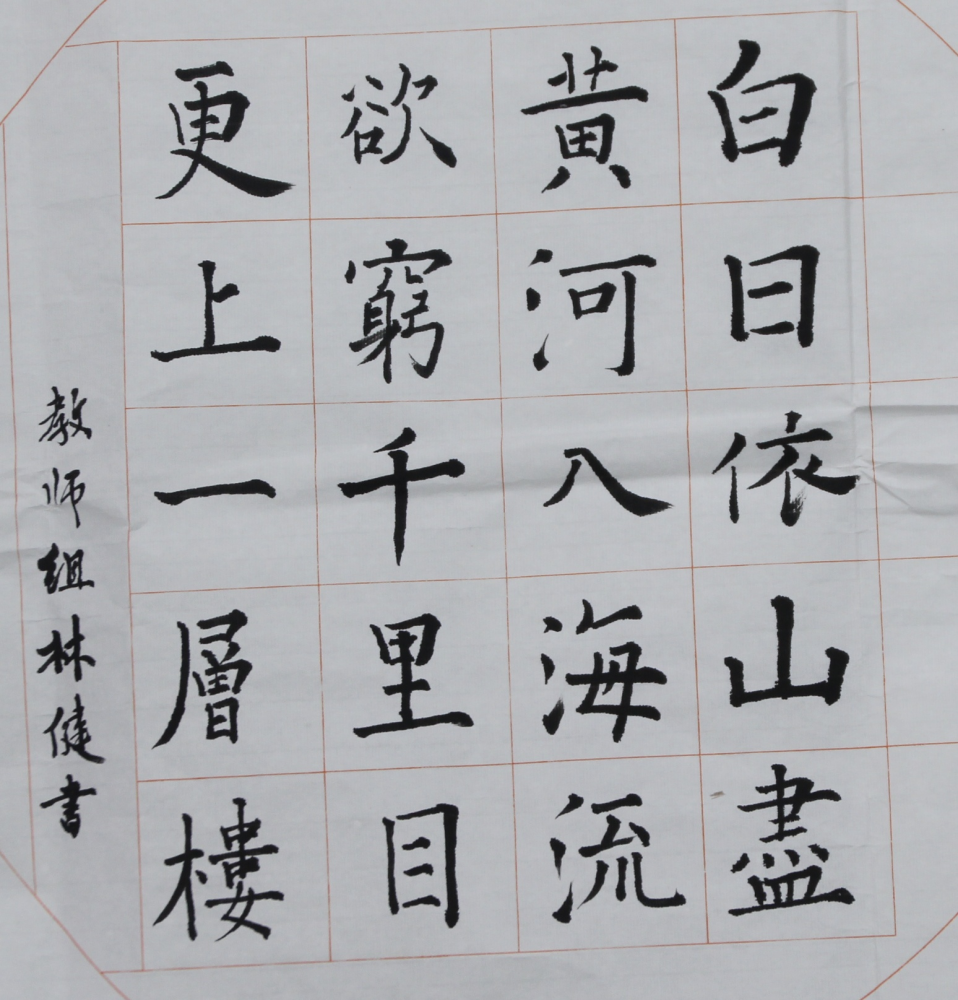 白日依山盡
黄河入海流
欲窮千里目
更上一層樓
教师组林健書